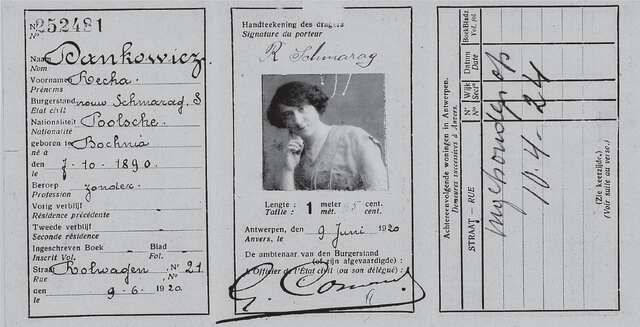 N° 252481
N°
Naam Dankowicz
Nom
Voornamen Recha.
Prénoms
Burgerstand vrouw Schmarag. S
Etat civil
Nationaliteit Poolsche.
Nationalité
geboren te Bochnia
né à
den 7-10-1890.
le
Beroep zonder.
Profession
Vorig verblijf
Résidence précédente
Tweede verblijf
Seconde résidence
Ingeschreven Boek Blad
Inscrit Vol. Fol.
Straat Rolwagen, Nr 21
Rue N°
den 9-6-1920.
le
Handteekening des dragers
Signature du porteur
R Schmarag
Lengte : 1 meter cent.
Taille : mét. cent.
Antwerpen, den 9 Juni 1920
Anvers, le
De ambtenaar van den Burgerstand
(of zijn afgevaardigde) :
L'Officier de l'État civil (ou son délégué) :
Achtereenvolgende woningen in Antwerpen.
Demeures successives à Anvers.
STRAAT — RUE
N° N°
Wijk Sect°
Datum Date
Boek Blad.
Vol. fol.
10-4-24
(Zie keerzijde.)
(Voir suite au verso.)